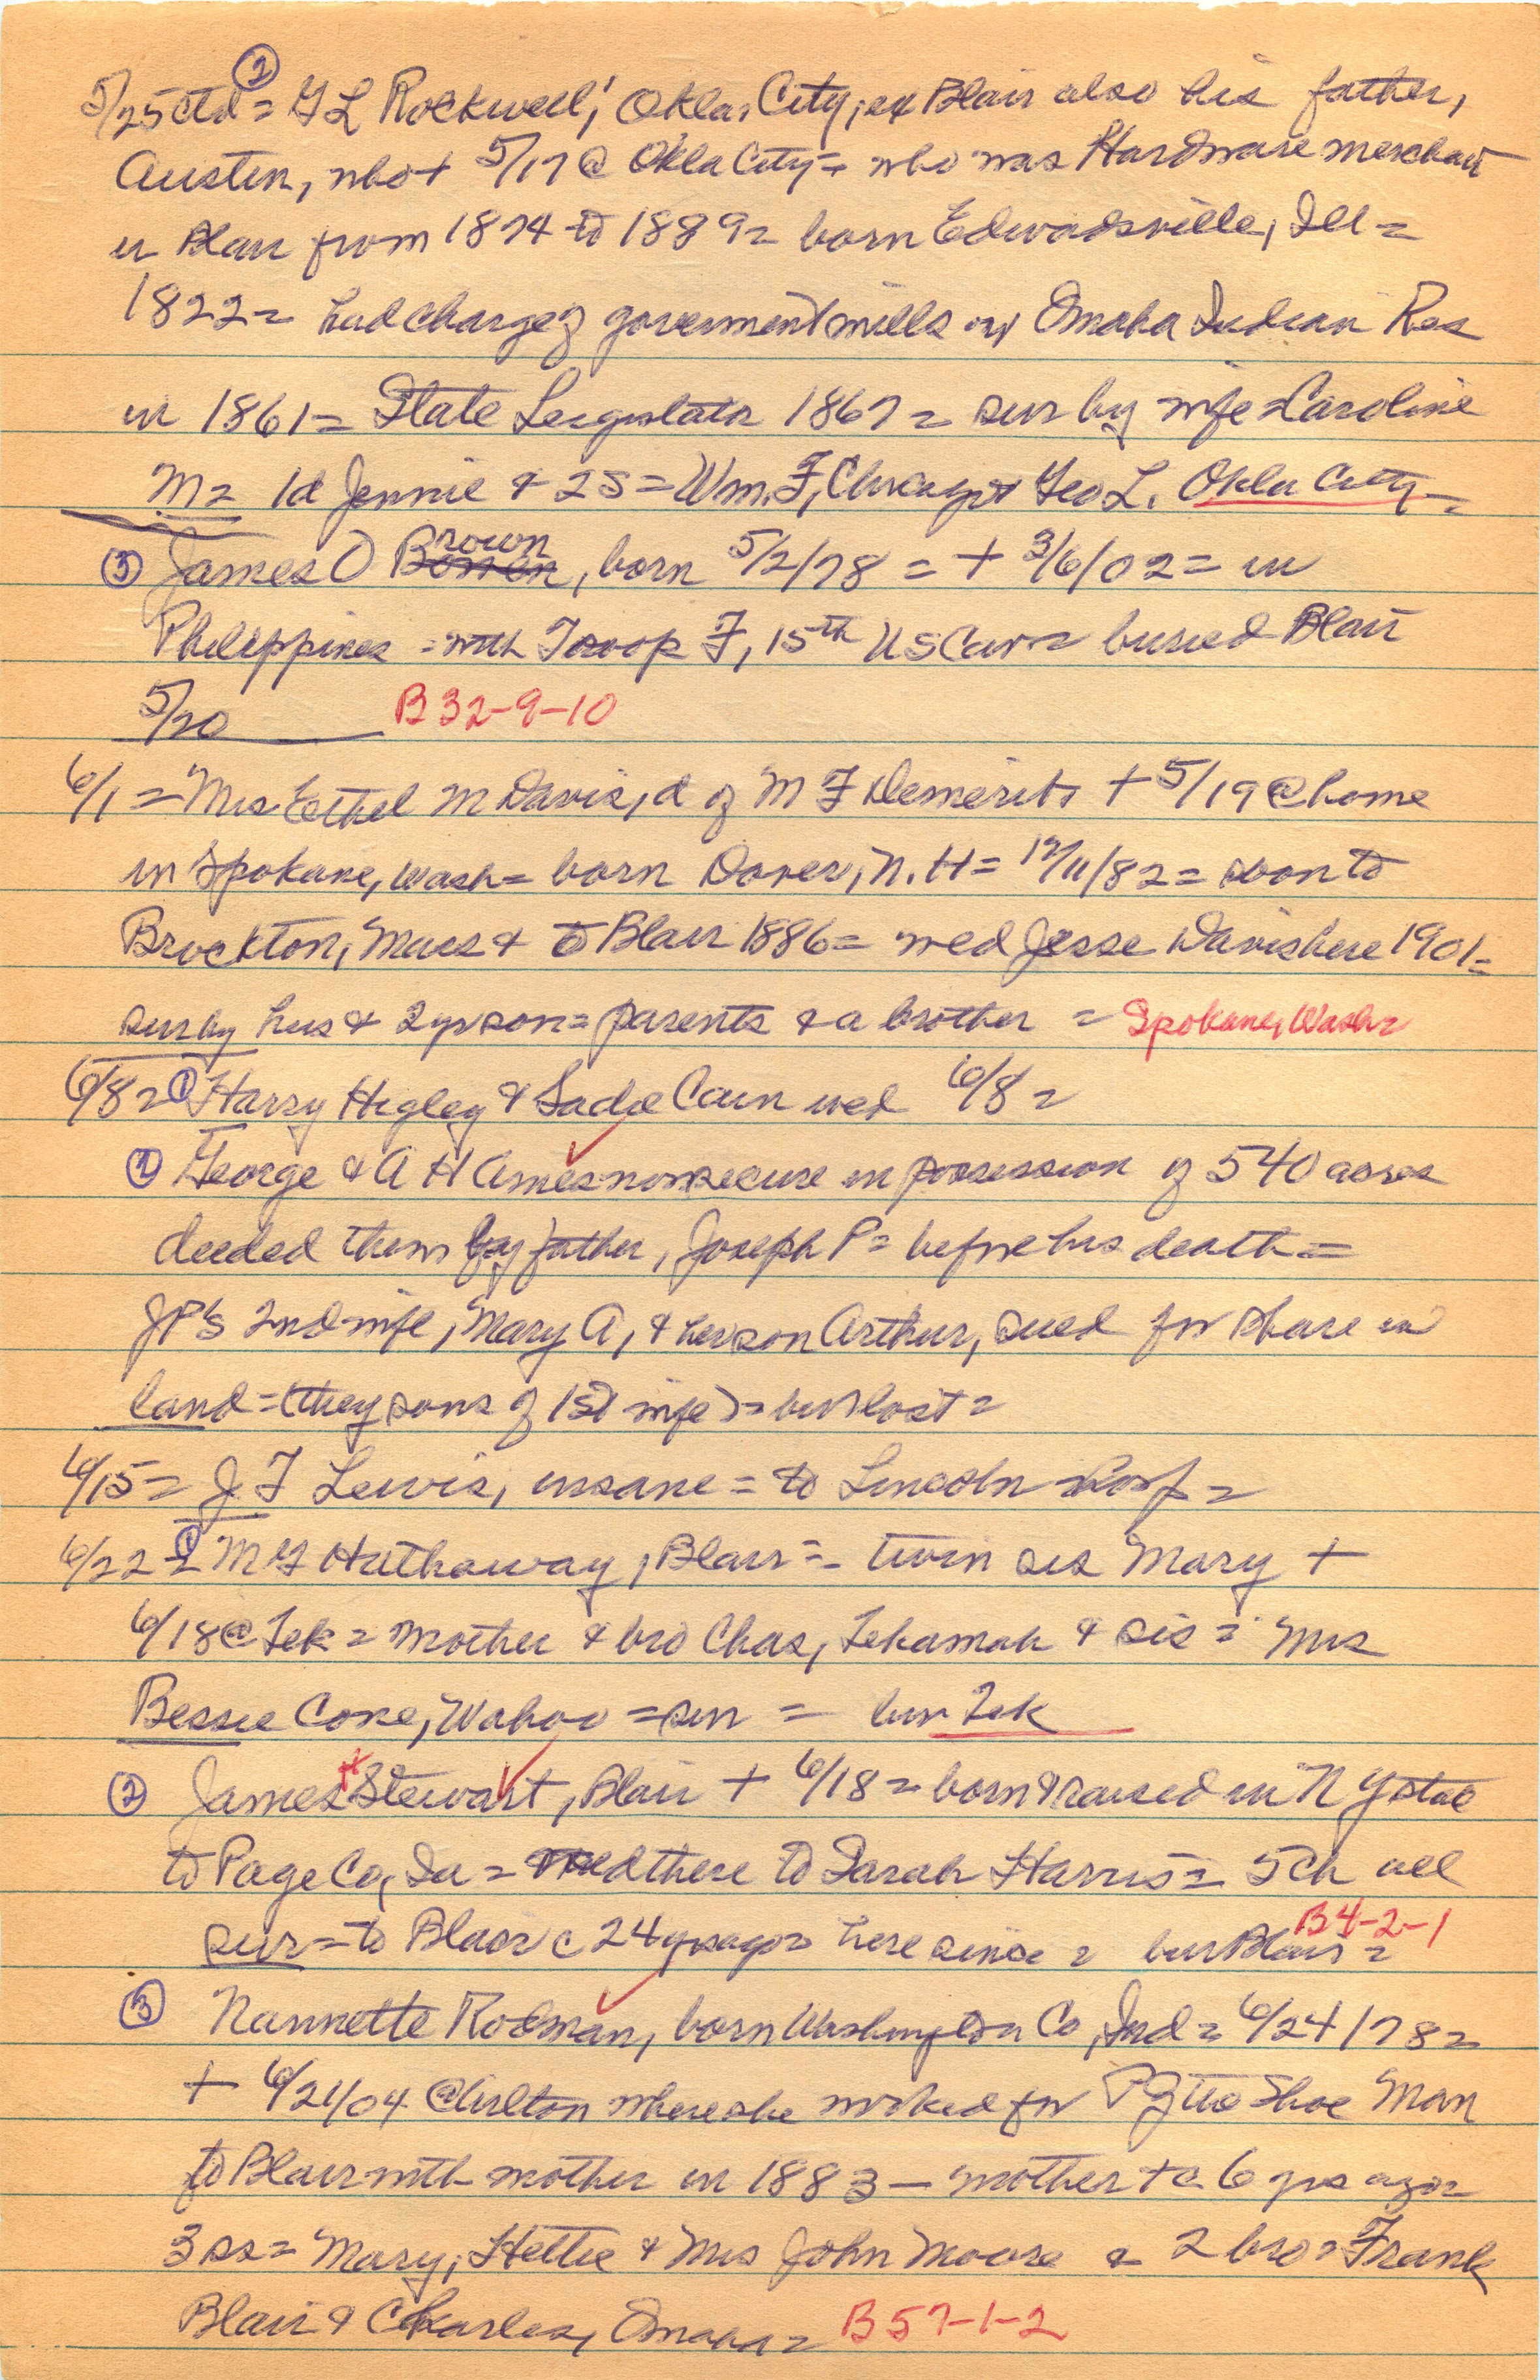 ②
5/25 ctd = G L Rockwell, Okla. City, ex Blair also his father,
Austin, who + 5/17 @ Okla City = who was Hardware merchant
in Blair from 1874 to 1889 = born Edwardsville, Ill =
1822 = had charge of goverment mills on Omaha Indian Res
in 1861 = State Legislator 1867 = sur by wife = Caroline
M = 1d Jennie & 2s = Wm. F, Chicago & Geo L. Okla City =
③ James O Brown, born 5/2/78 = + 3/6/02 = in
Philippines = with Troop F, 15th US Cav = buried Blair
5/20 B32-9-10
6/1 = Mrs Ethel M Davis, d of M F Demeritt + 5/19 @ home
in Spokane, Wash = born Dover, N.H = 12/11/82 = soon to
Brockton, Mass & to Blair 1886 = wed Jesse Davis here 1901 =
sur by hus & 2 yr son = parents & a brother = Spokane, Wash =
6/8 = ① Harry Higley & Sadie Cain wed 6/8 =
② George & A H Ames now secure in possession of 540 acres
deeded them by father, Joseph P = before his death =
JP's 2nd wife, Mary A, & her son Arthur, sued for share in
land = (they sons of 1st wife) = but lost =
6/15 = J F Lewis, insane = to Lincoln Hosp =
6/22 = ① M G Hathaway, Blair = twin sis Mary +
6/18 @ Tek = mother & bro Chas, Tekamah & sis = Mrs
Bessie Cone, Wahoo = sur = bur Tek
② James Stewart, Blair + 6/18 = born & raised in N Y state
to Page Co, Ia = wed there to Sarah Harris = 5 ch all
sur = to Blair c 24 yrs ago = here since = bur Blair = B4-2-1
③ Nannette Rodman, born Washington Co, Ind = 6/24/78 =
+ 6/21/04 @ where she worked for Shoe Man
to Blair with mother in 1883 — mother + c 6 yrs ago =
3 ss = Mary, Hettie & Mrs John Moore & 2 bro = Frank
Blair & Charles, Omaha = B57-1-2